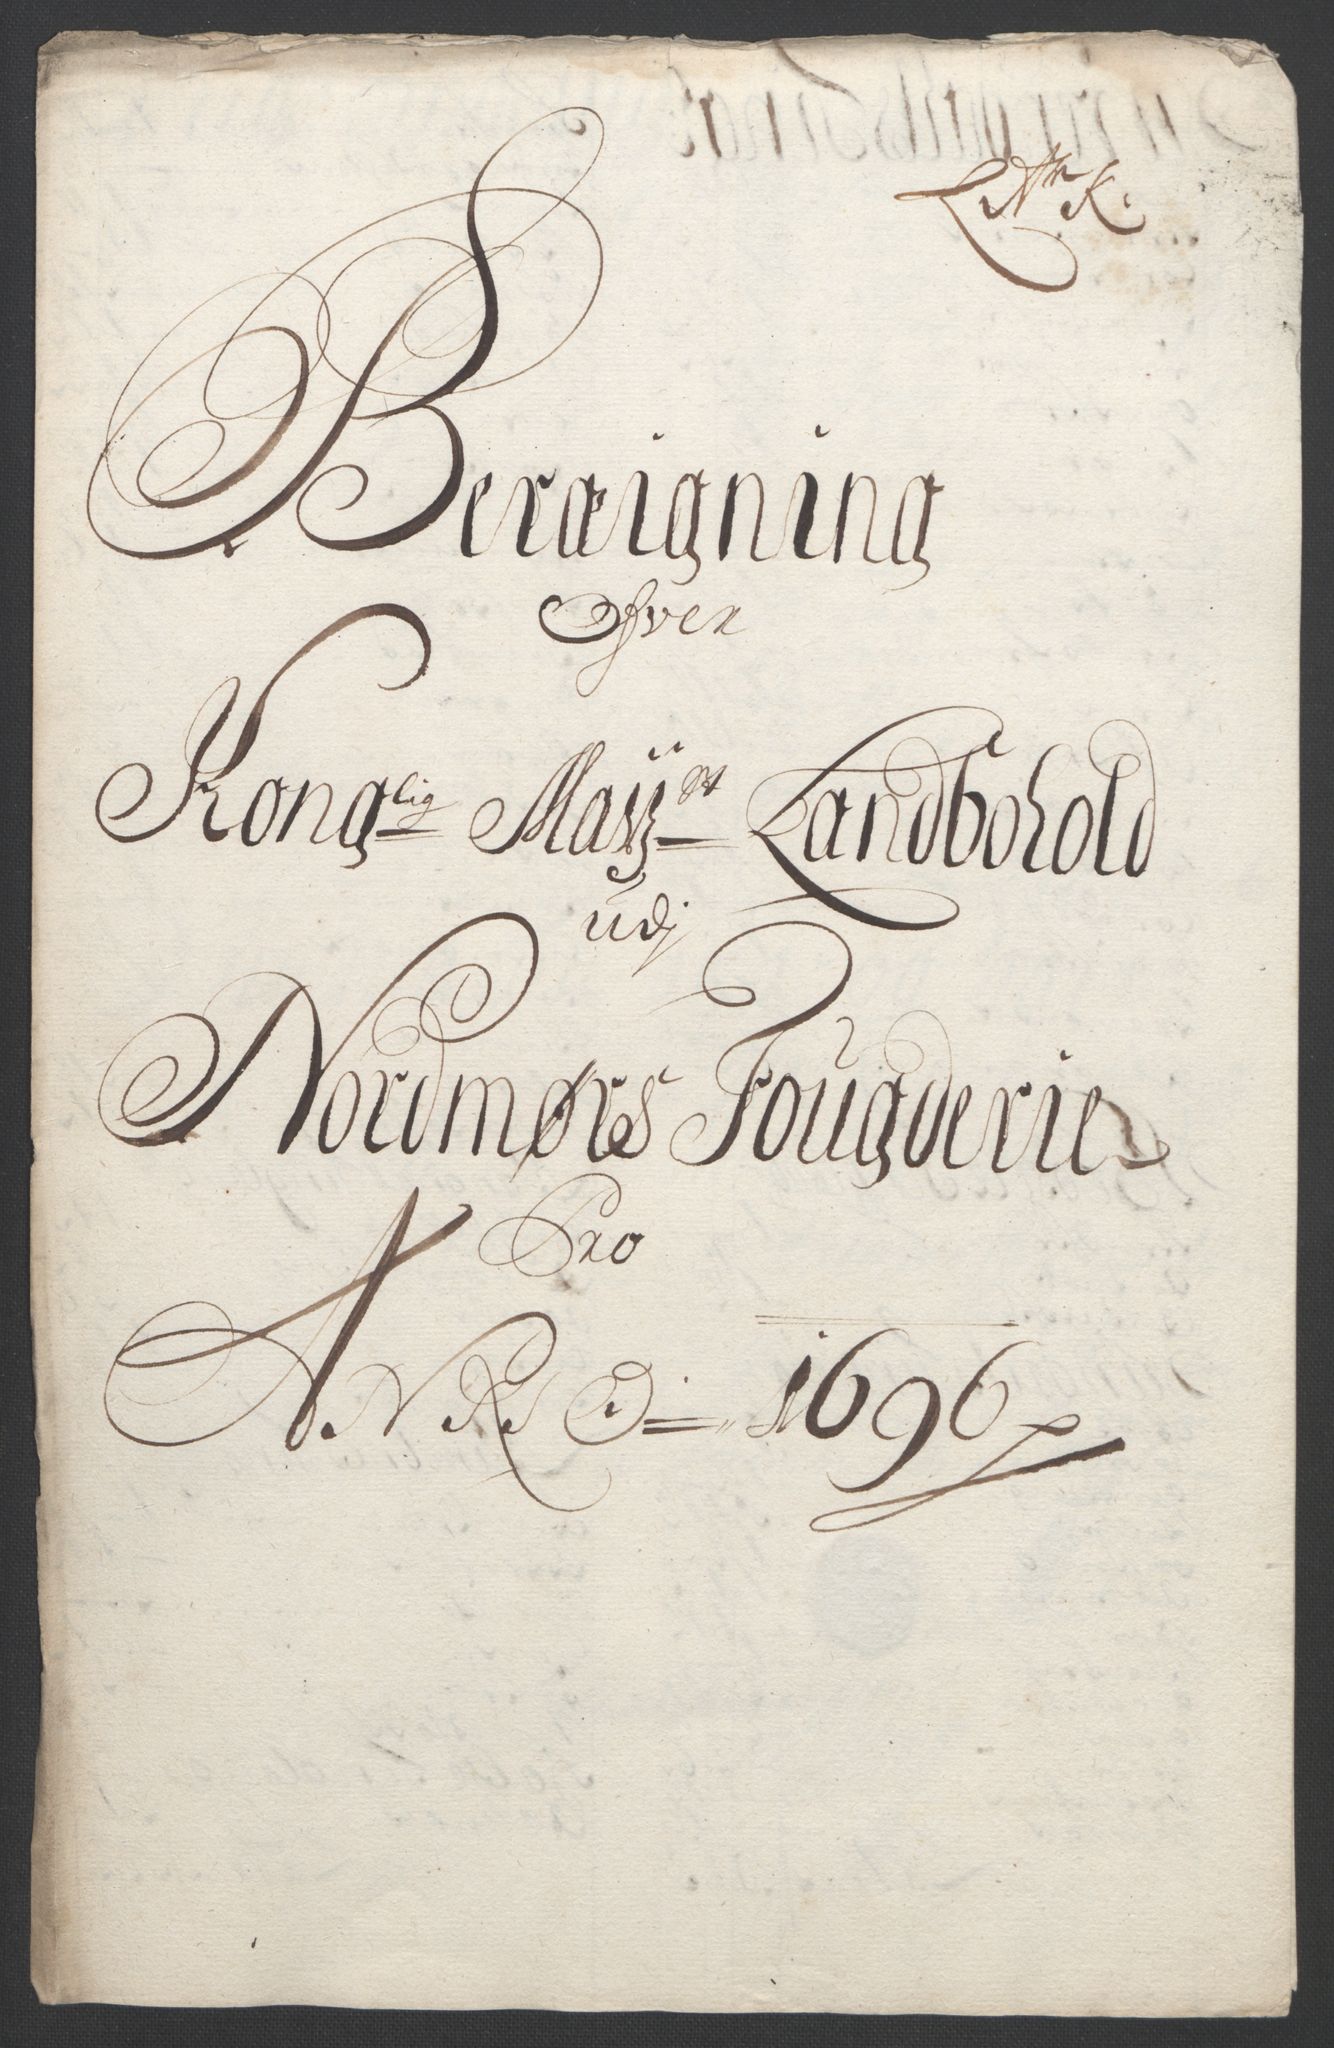 Ltr K.
Beræigning
Ofver
Konglig Mayst Landbohold
udj
Nordmørs Fougderie
Pro
ANNO 1696